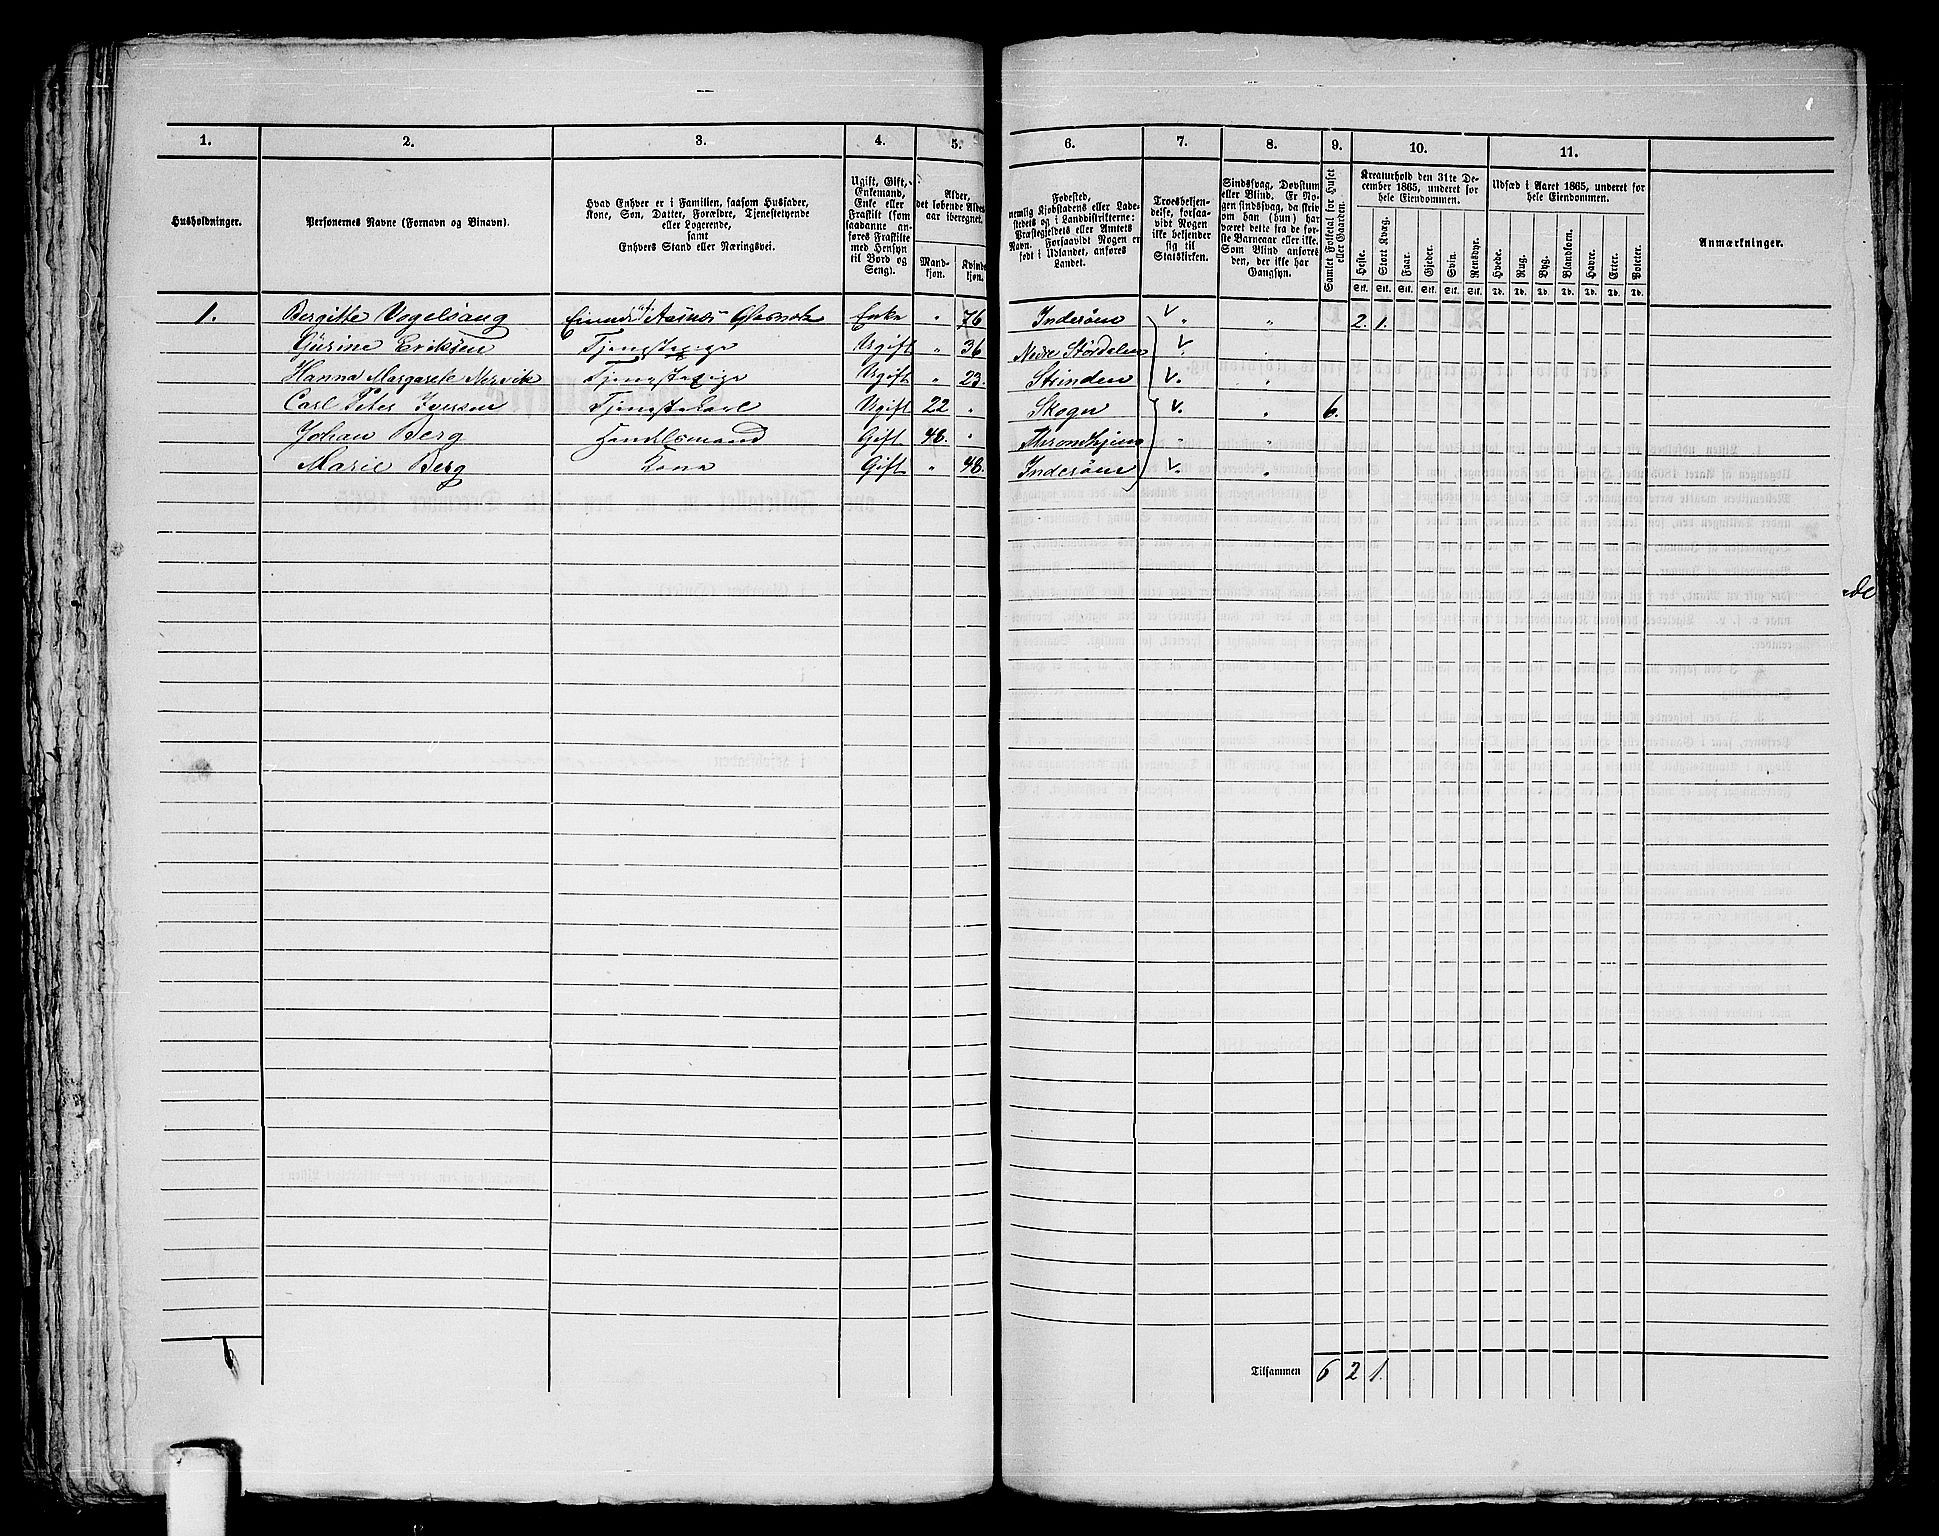 1. 2. 3. 4. 5. 6. 7. 8. 9. 10. 11.
Husholdninger.
Personernes Navne (Fornavn og Binavn).
Hvad Enhver er i Familien, saasom Husfader,
Kone, Søn, Datter, Forældre, Tjenestetyende
eller Logerende,
samt
Enhvers Stand eller Næringsvei.
Ugift, Gift,
Enkemand,
Enke eller
Fraskilt (som
saadanne an-
føres Fraskilte
med Hensyn
til Bord og
Seng).
Alder,
det løbende Alders-
aar iberegnet.
Mand-
kjøn.
Kvinde-
kjøn.
Fødested,
nemlig Kjøbstadens eller Lade-
stedets og i Landdistrikterne:
Præstegjeldets eller Amtets
Navn. Forsaavidt Nogen er
født i Udlandet, anføres
Landet.
Troesbekjen-
delse, forsaa-
vidt Nogen
ikke bekjender
sig til
Statskirken.
Sindssvag, Døvstum
eller Blind. Er No-
gen sindssvag, da skriv
om han (hun) har
været dette fra de før-
ste Barneaar eller ikke.
Som Blind anføres
den, der ikke har
Gangsyn.
Samlet Folketal for Huset
eller Gaarden.
Kreaturhold den 31te De-
cember 1865, underet for
hele Eiendommen.
Heste. Stort Kvæg. Faar. Gjeder. Svin. Rensdyr.
Stk. Stk. Stk. Stk. Stk. Stk.
Udsæd i Aaret 1865, underet for
hele Eiendommen.
Hvede. Rug. Byg. Blandkorn. Havre. Erter. Poteter.
Td. Td. Td. Td. Td. Td. Td.
Anmærkninger.
1. Bergitte Vogelsang Enke " 76 Inderøen V " " 2. 1.
Gurine Eriksen Tjenestepige Ugift " 36 Nedre Størdalen V
Hanna Margarete Tjenestepige Ugift " 23. Strinden V. "
Carl Peter Iversen Tjenestekarl Ugift 22 " Skogn V. " 6.
Johan Berg Handelsmand Gift 48. " Throndhjem " "
Marie Berg Kone Gift " 48. Inderøen V. "
Tilsammen 6 2 1.